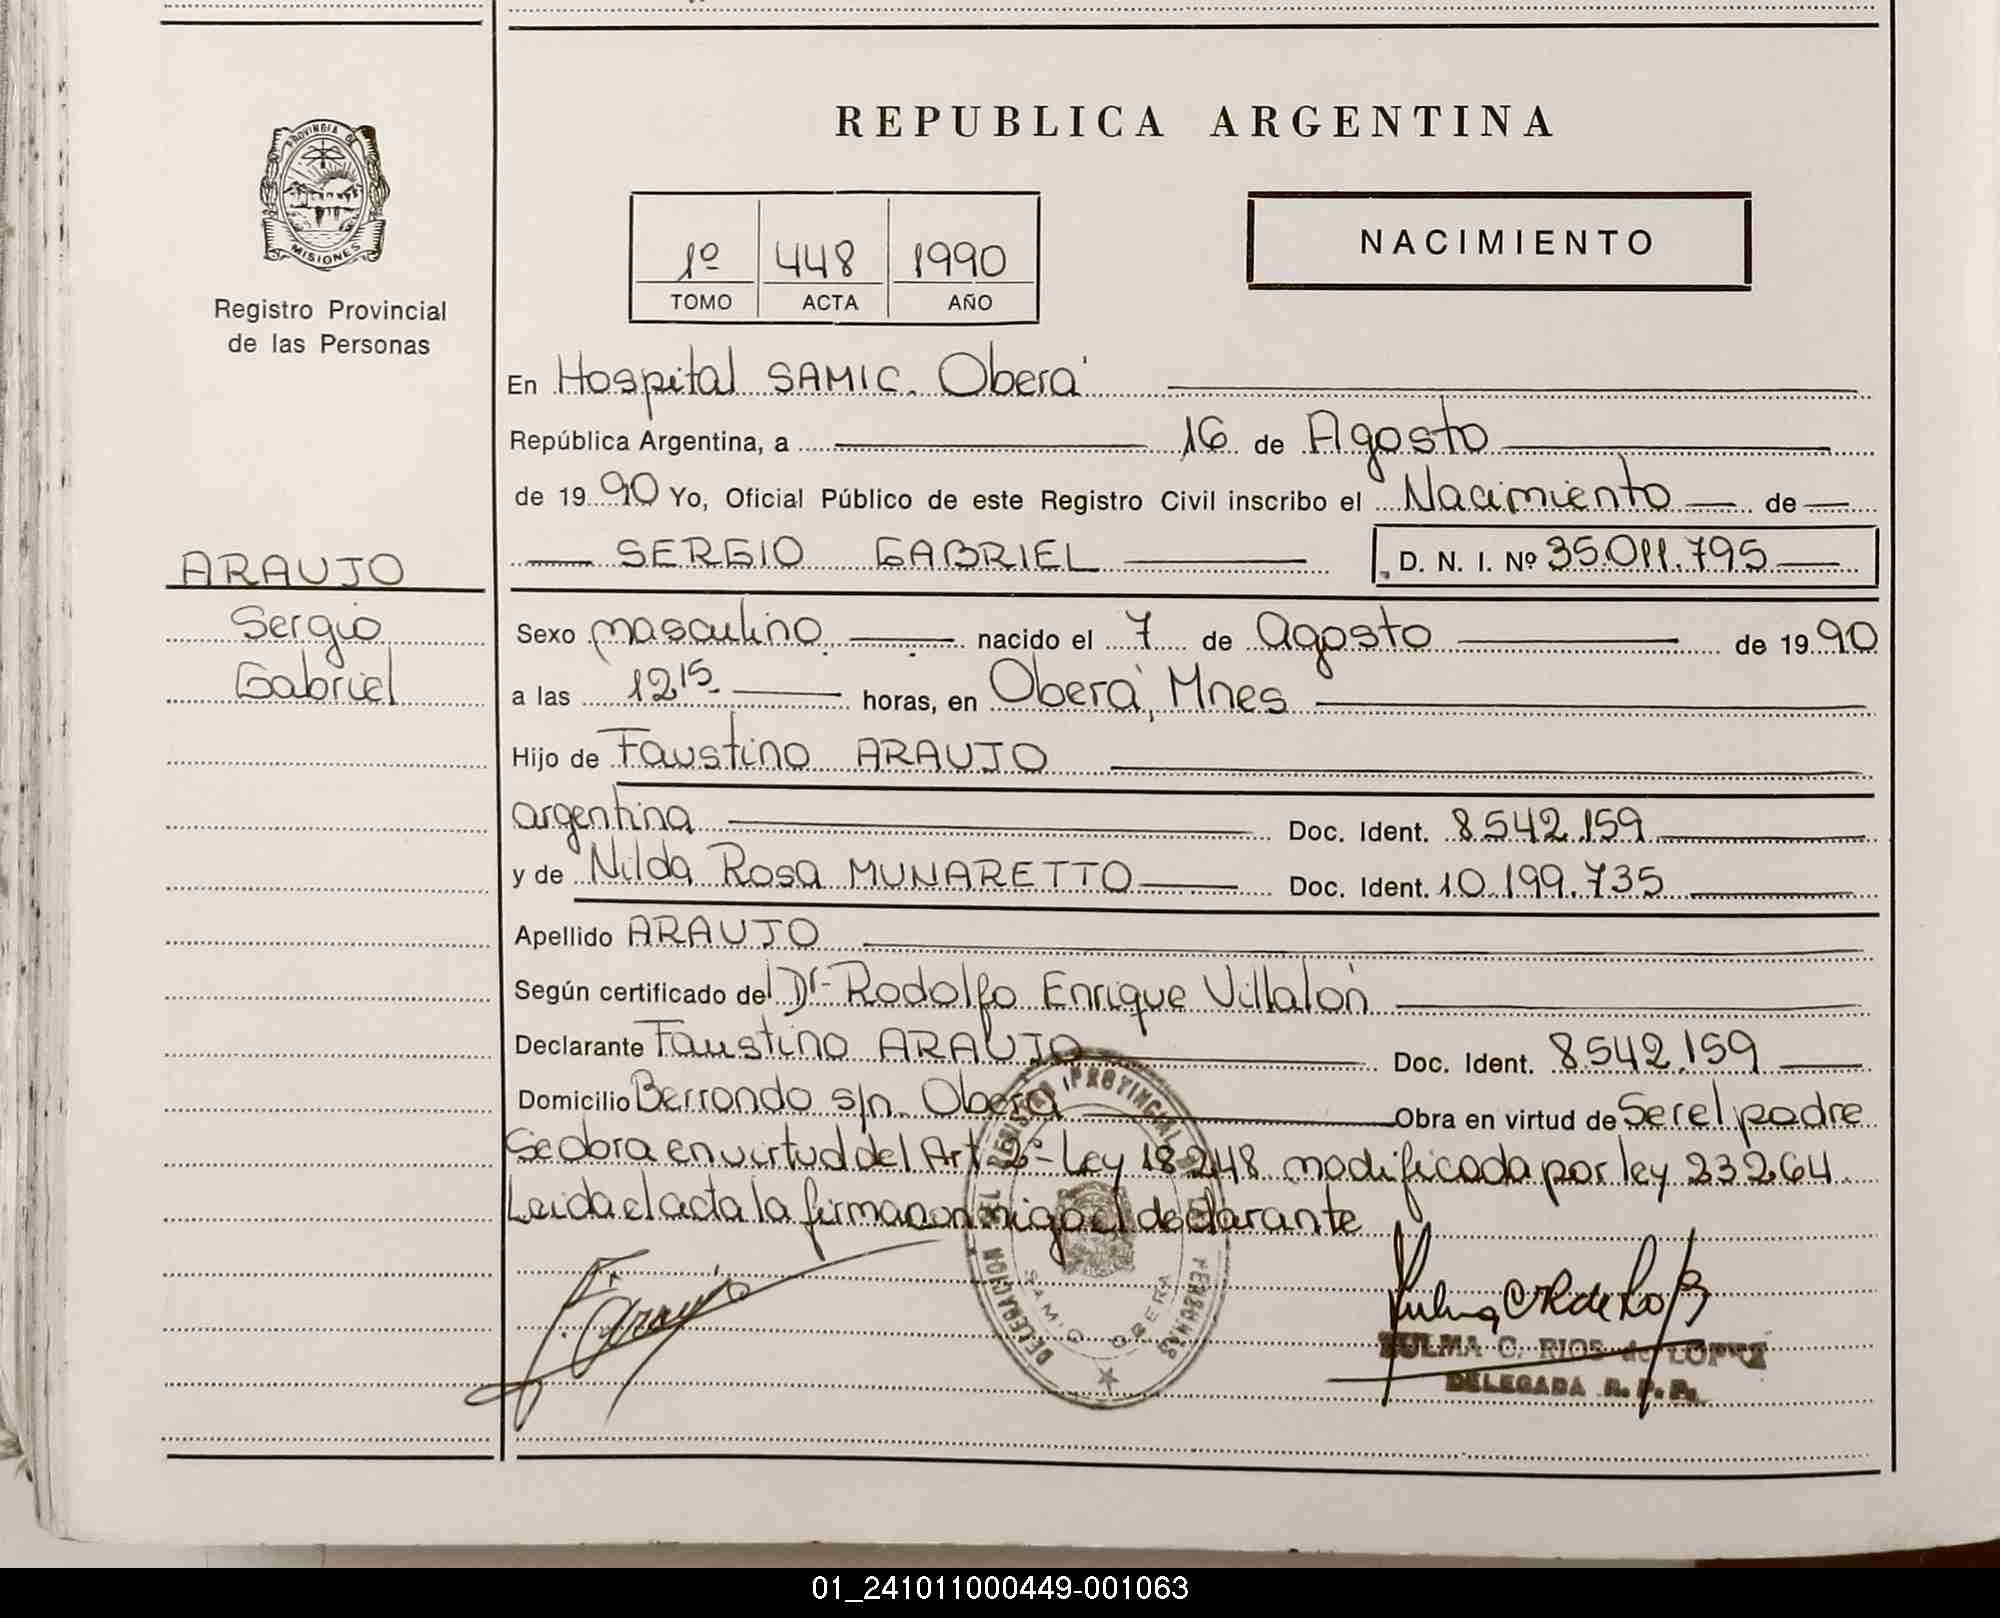 REPUBLICA ARGENTINA
PROVINCIA DE MISIONES
Registro Provincial
de las Personas
1º 448 1990
TOMO ACTA AÑO
NACIMIENTO
En Hospital SAMIC. Oberá
República Argentina, a 16 de Agosto
de 1990 Yo, Oficial Público de este Registro Civil inscribo el Nacimiento de
SERGIO GABRIEL D. N. I. Nº 35.011.795
ARAUJO
Sergio
Gabriel
Sexo masculino nacido el 7 de Agosto de 1990
a las 12 15 horas, en Oberá, Mnes
Hijo de Faustino ARAUJO
argentina Doc. Ident. 8.542.159
y de Nilda Rosa MUNARETTO Doc. Ident. 10.199.735
Apellido ARAUJO
Según certificado del Dr- Rodolfo Enrique Villalón
Declarante Faustino ARAUJO Doc. Ident. 8.542.159
Domicilio Berrondo s/n. Oberá Obra en virtud de Ser el padre
Se obra en virtud del Art 2º- Ley 18.248 modificada por ley 23264
Leida el acta la firma conmigo el declarante
F. Araujo
REGISTRO PROVINCIAL DE LAS PERSONAS
DELEGACION
SAMIC OBERA
ZULMA C. RIOS de LOPEZ
DELEGADA R. P. P.
01_241011000449-001063